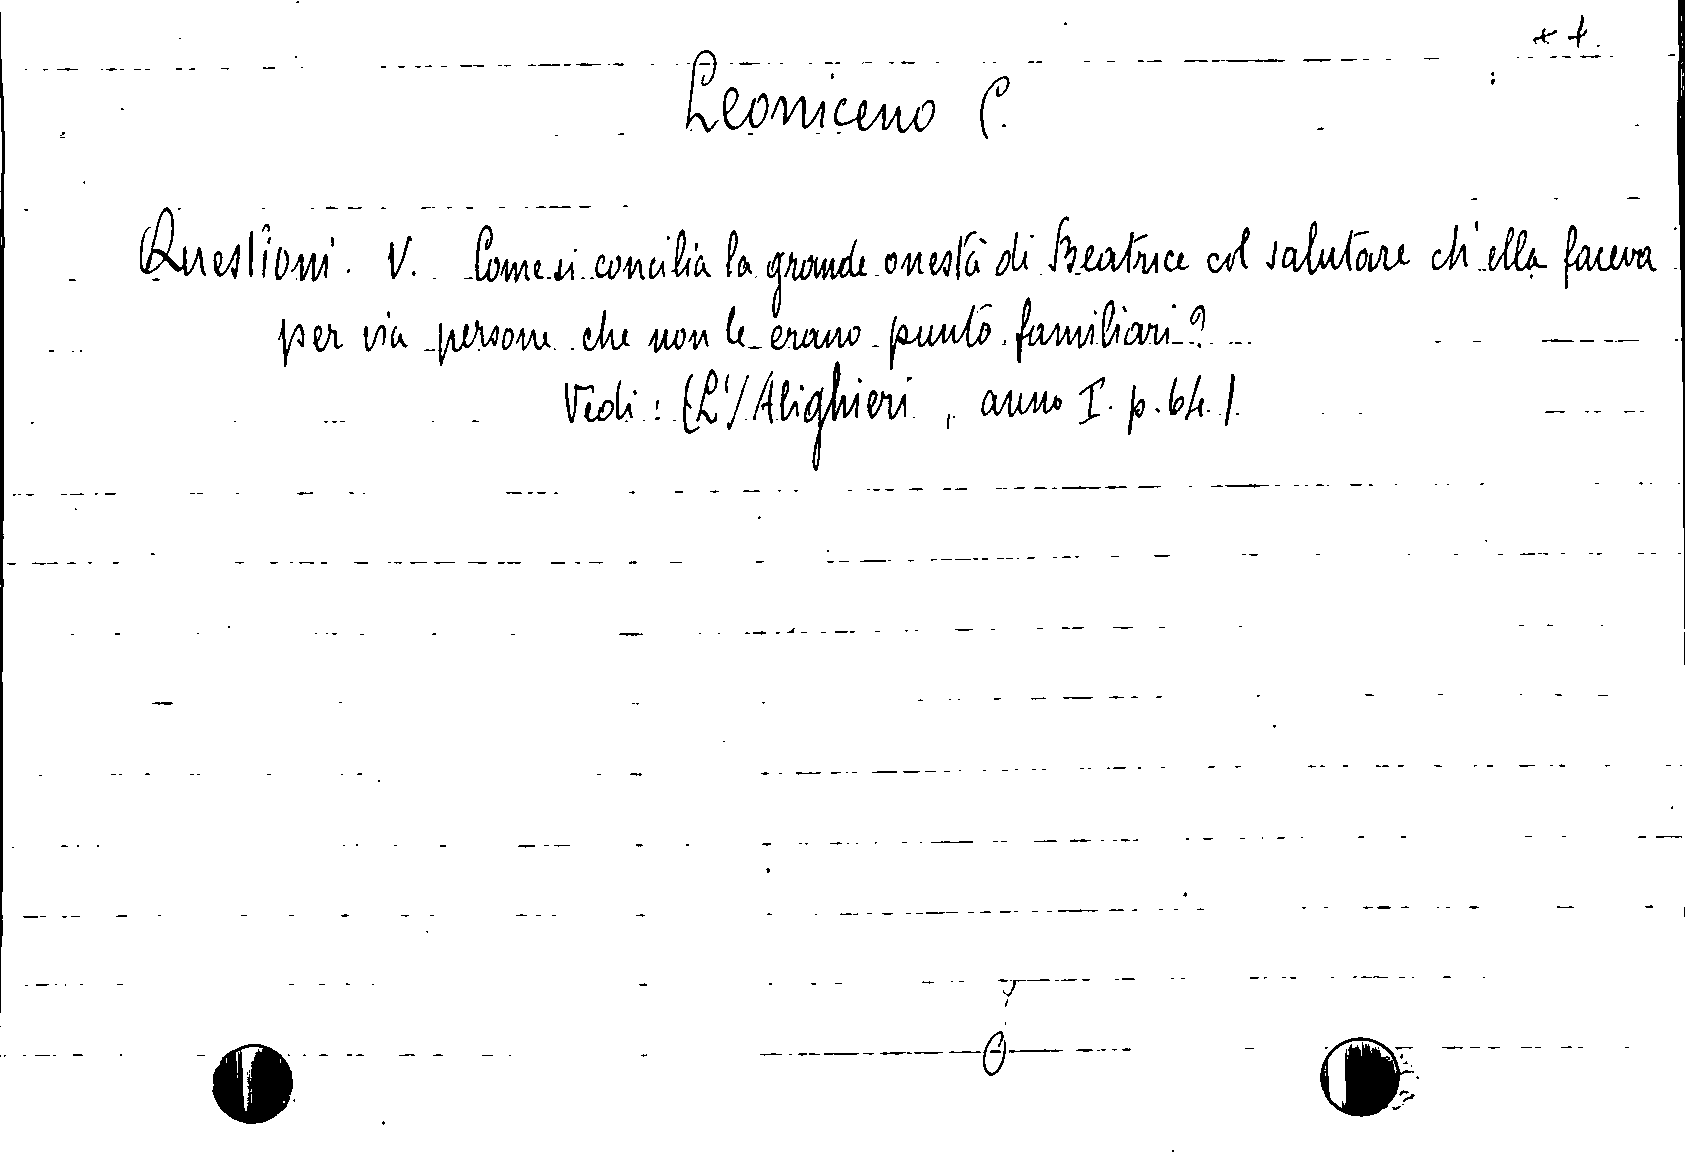 * +.
Leoniceno C.
Questioni. V. Come si concilia la grande onestà di Beatrice col salutare ch'ella faceva
per via persone che non le erano punto familiari?
Vedi: (L')Alighieri, anno I. p. 64.)